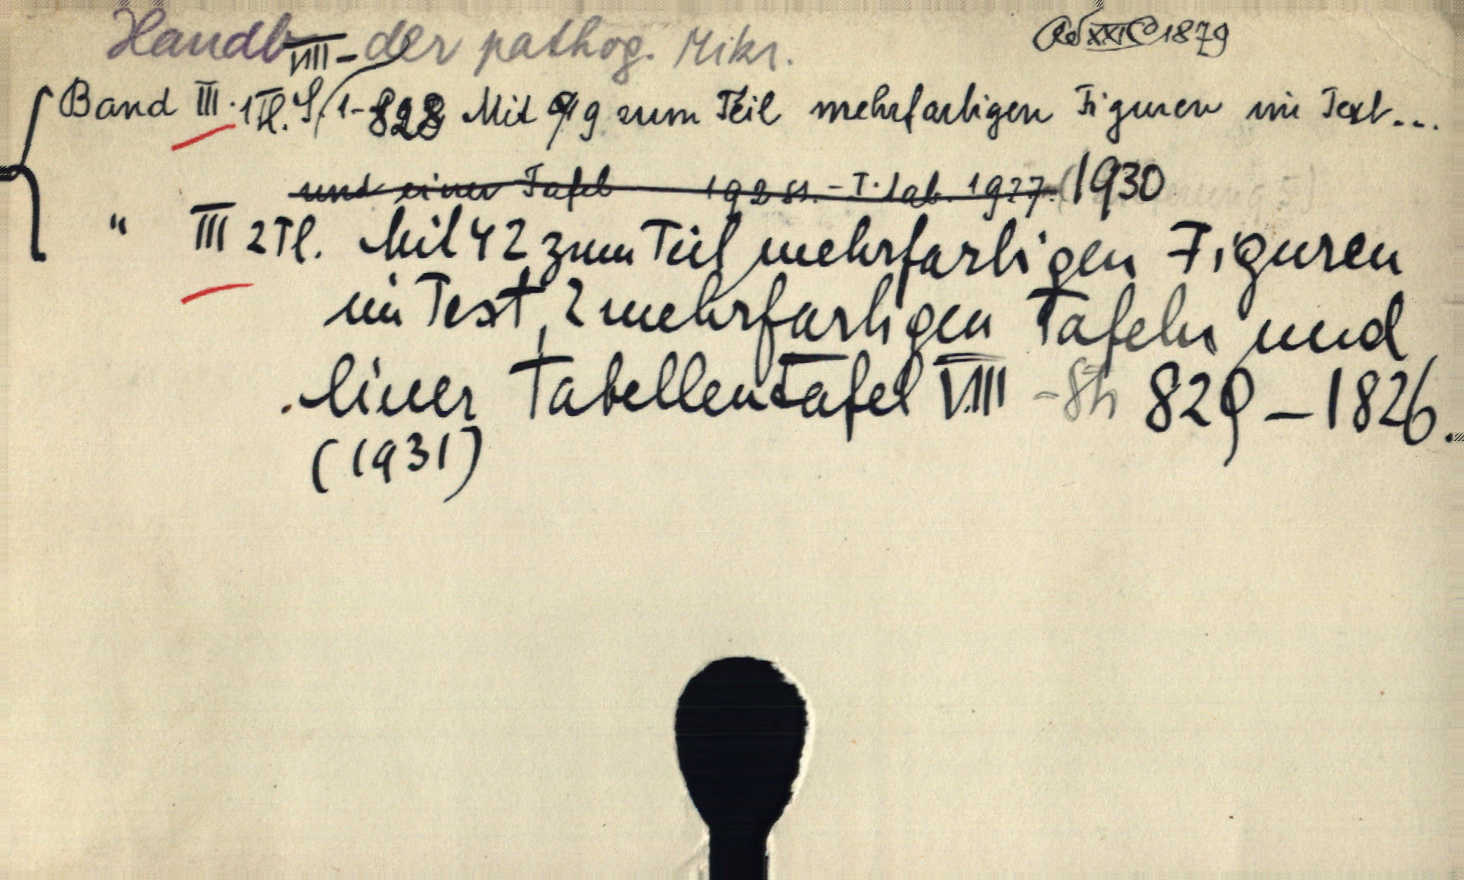 Handb. der pathog. Mikr.
Ad XXIC 1879
VIII –
Band III. 1 Tl. S. 1-828 Mit 99 zum Teil mehrfarbigen Figuren im Text...
und einer Tafel 192 1927. 1930
" III 2 Tl. Mit 42 zum Teil mehrfarbigen Figuren
im Text, 2 mehrfarbigen Tafeln und
einer Tabellentafel VIII – 829 – 1826.
(1931)